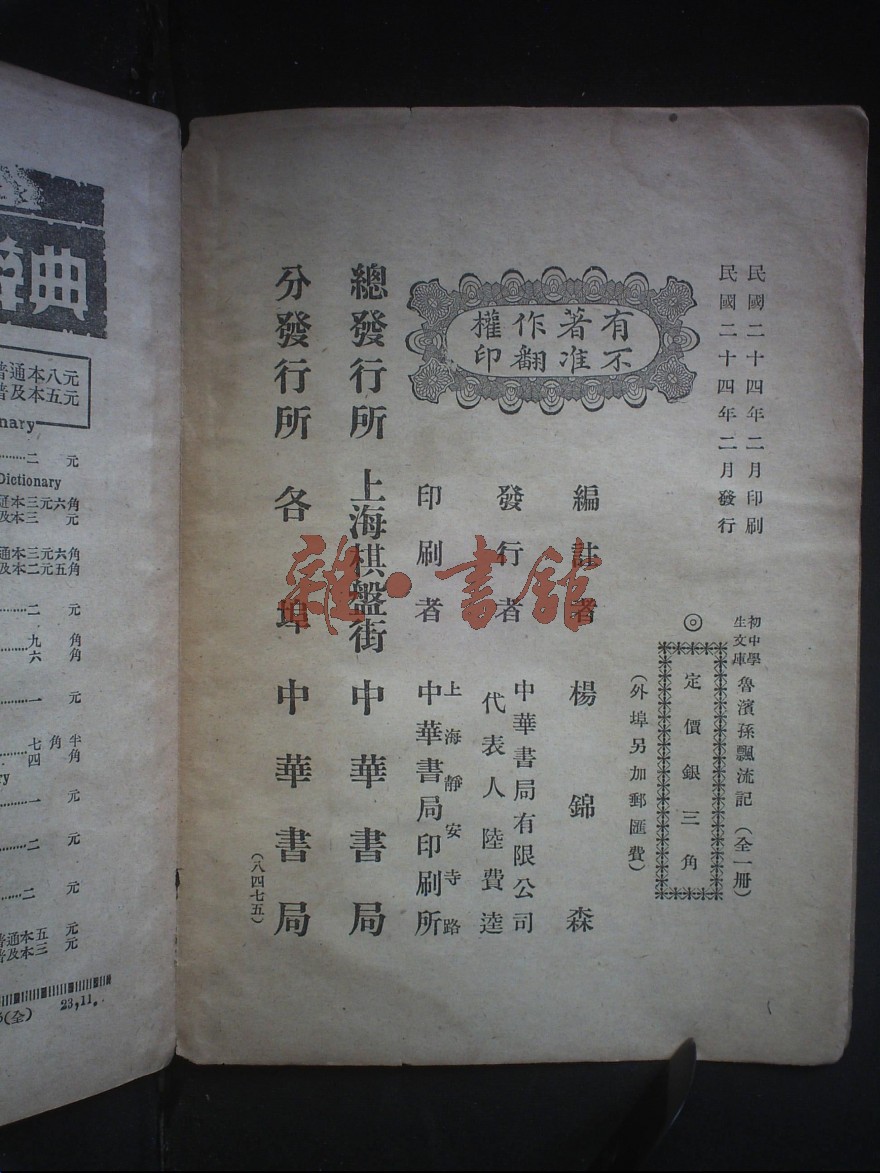 民國二十四年二月印刷
民國二十四年二月發行
初中學生文庫 魯濱孫飄流記（全一冊）
◎
定價銀三角
（外埠另加郵匯費）
有著作權
不准翻印
編註者 楊錦森
發行者 中華書局有限公司
代表人陸費逵
印刷者 上海靜安寺路
中華書局印刷所
總發行所 上海棋盤街 中華書局
分發行所 各埠 中華書局
（八四七五）
雜·書館
典
普通本八元
普及本五元
nary
二元
Dictionary
通本三元六角
及本三元
通本三元六角
及本二元五角
二元
九角
六角
一元
七角半
四角
一元
二元
二元
普通本五元
普及本三元
(全) 23,11.